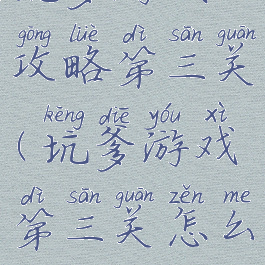 gōng lüè dì sān guān
攻略第三关
kēng diē yóu xì
(坑爹游戏
dì sān guān zěn me
第三关怎么